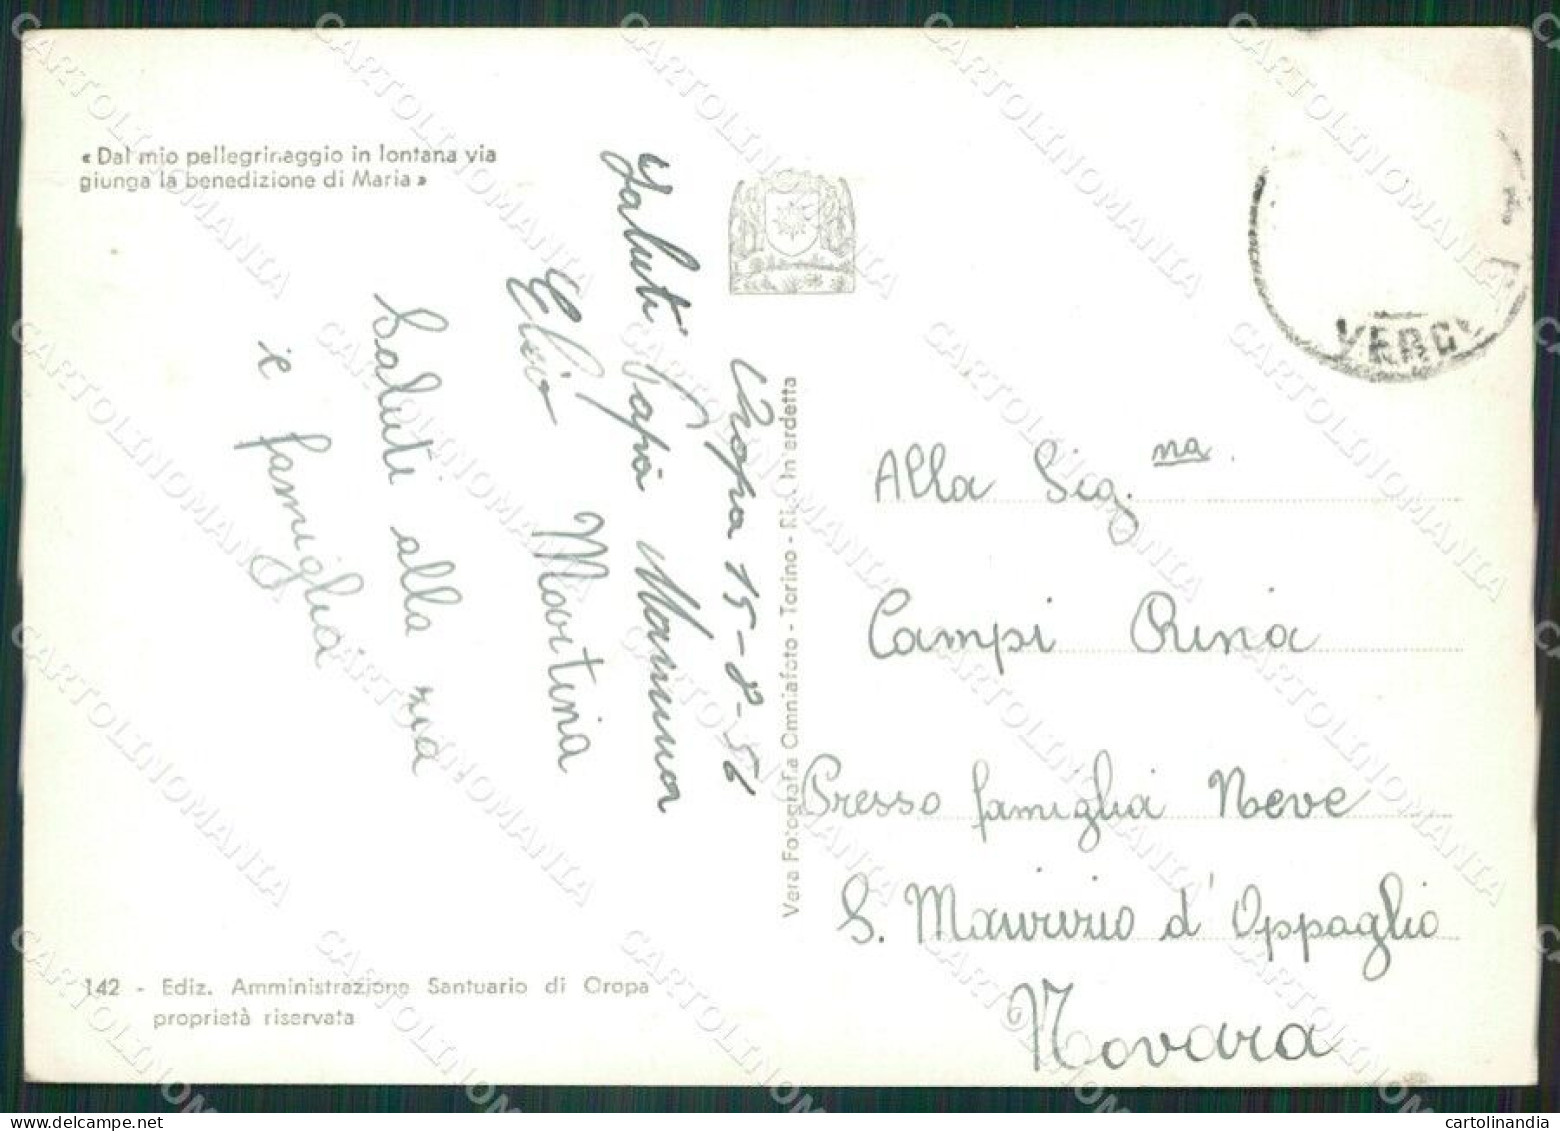 « Dal mio pellegrinaggio in lontana via
giunga la benedizione di Maria »
Oropa 15-8-56
Saluti Papà Mamma
Elio Martina
Saluti alla zia
e famiglia
142 - Ediz. Amministrazione Santuario di Oropa
proprietà riservata
Vera Fotografia Omniafoto - Torino - Rip. Interdetta
Alla Sig.na
Campi Rina
Presso famiglia Neve
S. Maurizio d'Oppaglio
Novara
CARTOLINOMANIA
cartolinandia